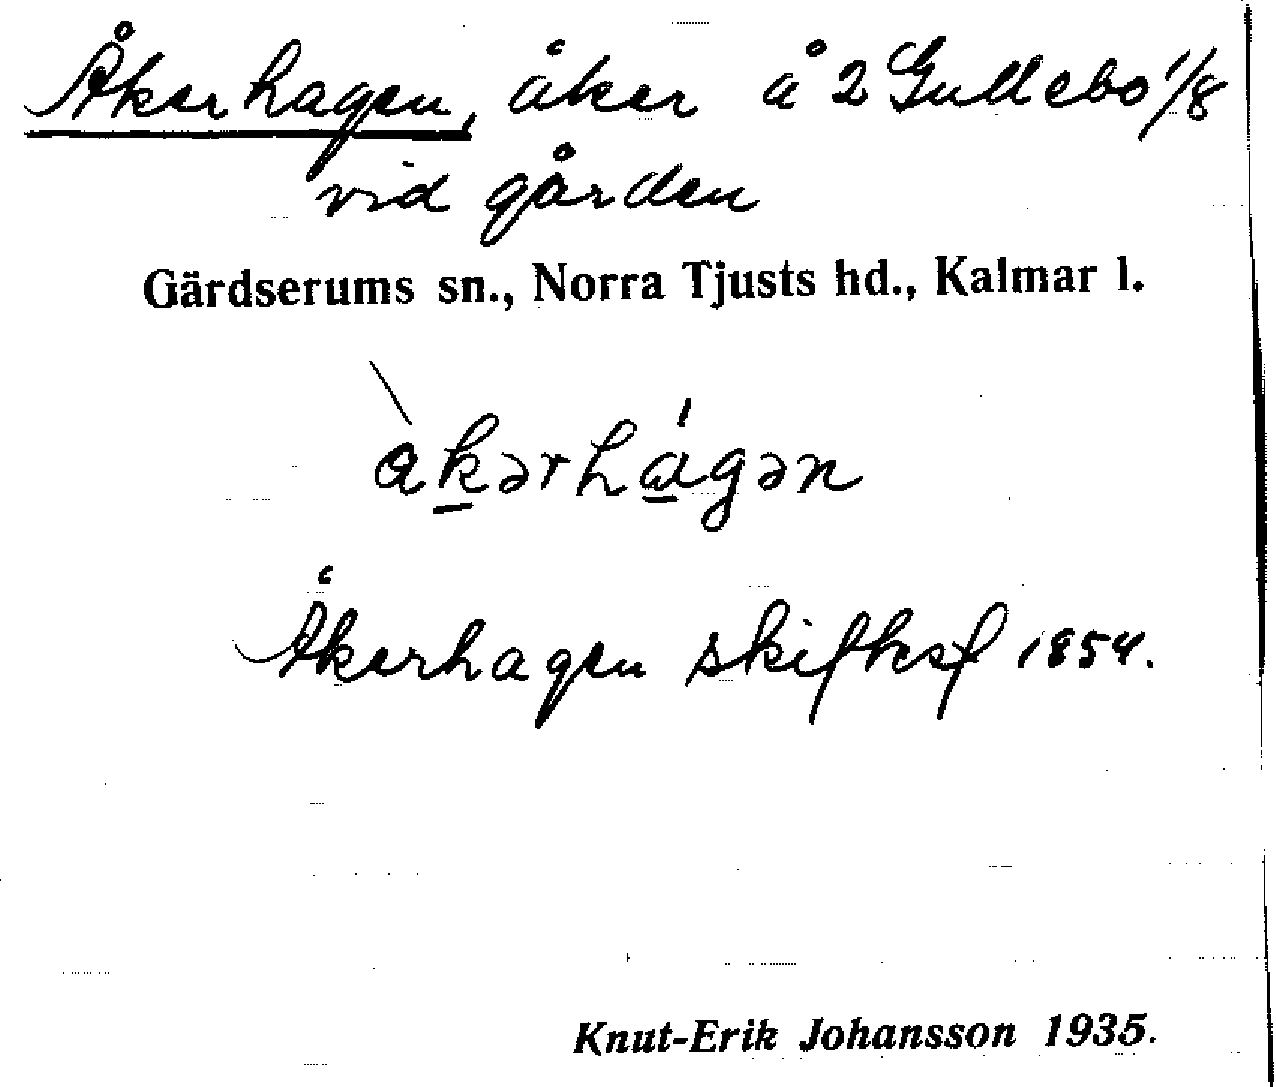 Åkerhagen, åker å 2 Gullebo 1/8
vid gården
Gärdserums sn., Norra Tjusts hd., Kalmar l.
àk̠ərhá̠gən
Åkerhagen skifksf 1854.
Knut-Erik Johansson 1935.